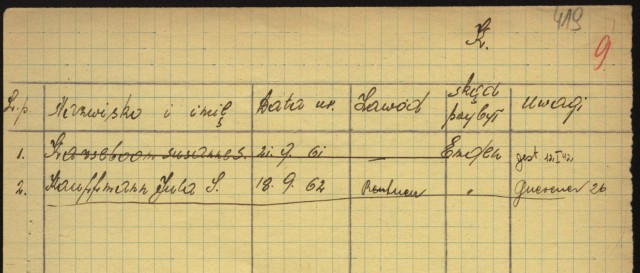 419
K.
9
L.p. Nazwisko i imię Data ur. Zawód skąd przybył Uwagi
1. Karseboom Susanne S. 21. 9. 61 — Emden gest. 12 I 42
2. Kauffmann Jula S. 18. 9. 62 Rentner " 26